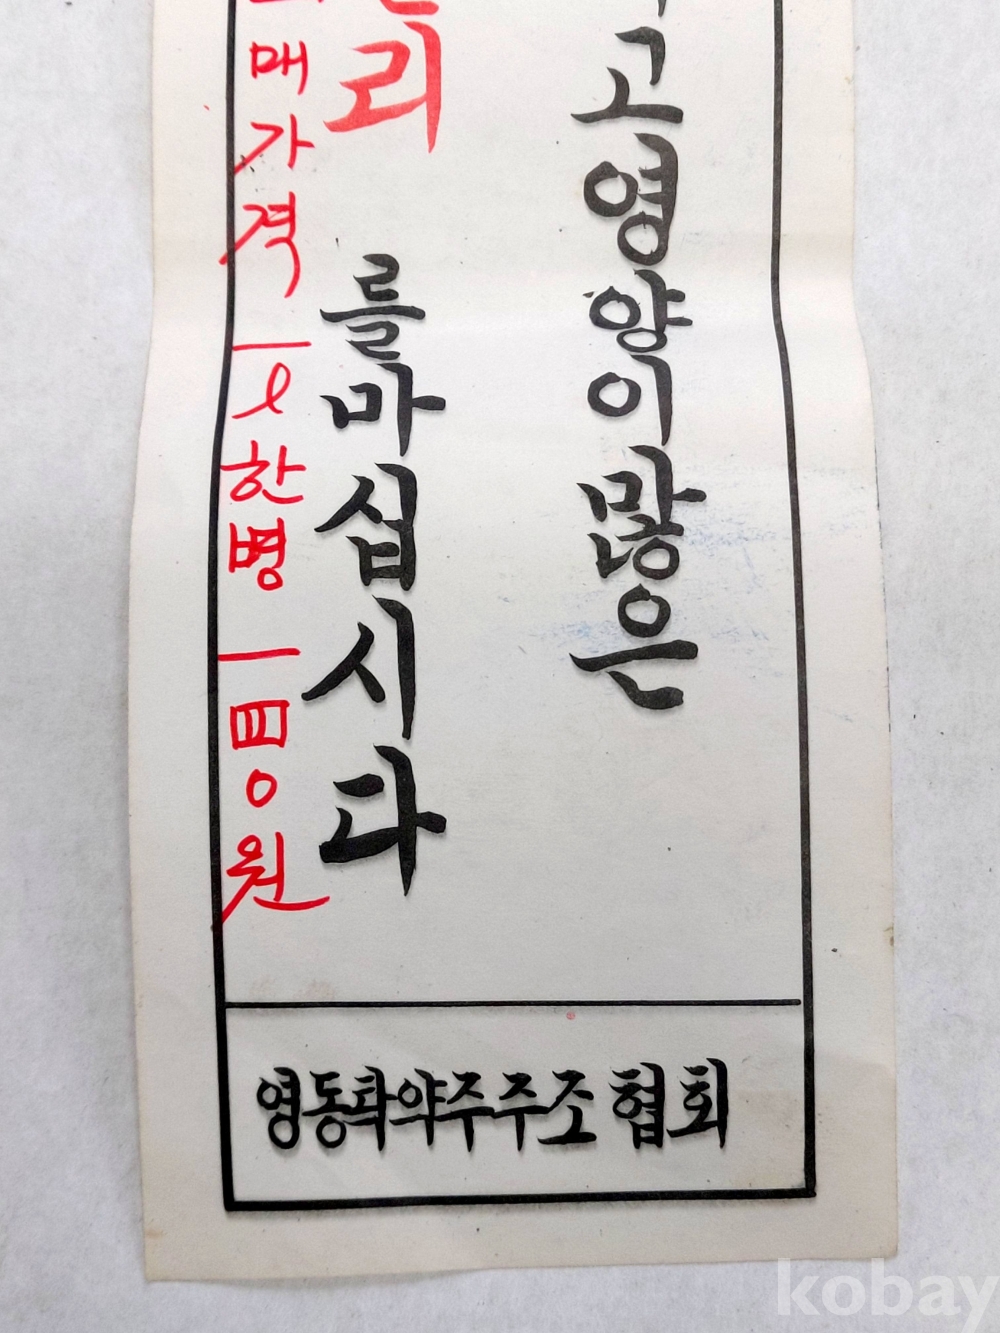 고영양이많은
리를마십시다
매가격一ℓ한병一四0원
영동탁약주주조협회
kobay